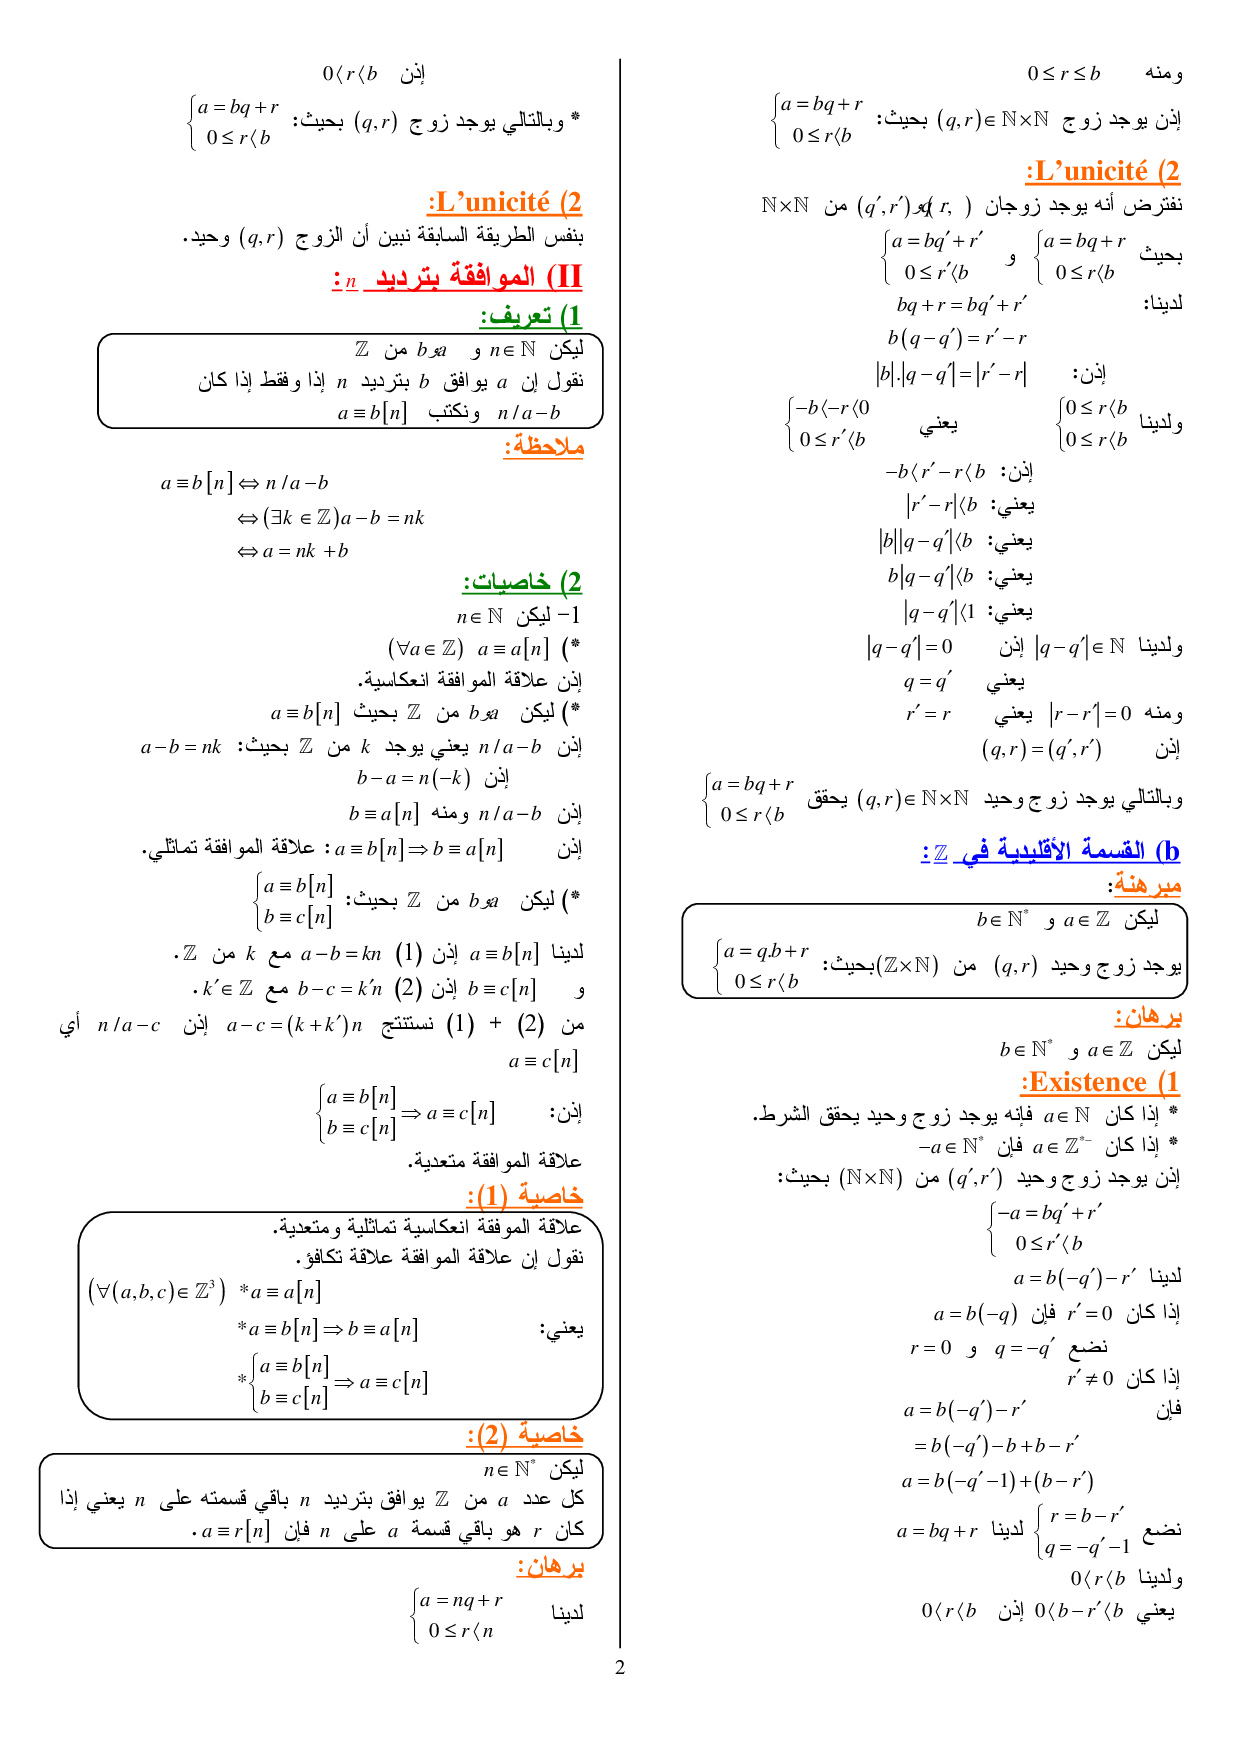 ومنه 0 ≤ r ≤ b
إذن يوجد زوج (q,r) ∈ ℕ×ℕ بحيث: { a = bq + r ; 0 ≤ r〈b
2) L’unicité:
نفترض أنه يوجد زوجان (q, r) و (q′, r′) من ℕ×ℕ
بحيث { a = bq + r ; 0 ≤ r〈b و { a = bq′ + r′ ; 0 ≤ r′〈b
لدينا: bq + r = bq′ + r′
b(q − q′) = r′ − r
إذن: |b|.|q − q′| = |r′ − r|
ولدينا { 0 ≤ r〈b ; 0 ≤ r〈b يعني { −b〈−r〈0 ; 0 ≤ r′〈b
إذن: −b〈r′ − r〈b
يعني: |r′ − r|〈b
يعني: |b||q − q′|〈b
يعني: b|q − q′|〈b
يعني: |q − q′|〈1
ولدينا |q − q′| ∈ ℕ إذن |q − q′| = 0
يعني q = q′
ومنه |r − r′| = 0 يعني r′ = r
إذن (q,r) = (q′,r′)
وبالتالي يوجد زوج وحيد (q,r) ∈ ℕ×ℕ يحقق { a = bq + r ; 0 ≤ r〈b
b) القسمة الأقليدية في ℤ:
مبرهنة:
ليكن a ∈ ℤ و b ∈ ℕ*
يوجد زوج وحيد (q,r) من (ℤ×ℕ) بحيث: { a = q.b + r ; 0 ≤ r〈b
برهان:
ليكن a ∈ ℤ و b ∈ ℕ*
1) Existence:
* إذا كان a ∈ ℕ فإنه يوجد زوج وحيد يحقق الشرط.
* إذا كان a ∈ ℤ*⁻ فإن −a ∈ ℕ*
إذن يوجد زوج وحيد (q′,r′) من (ℕ×ℕ) بحيث:
{ −a = bq′ + r′ ; 0 ≤ r′〈b
لدينا a = b(−q′) − r′
إذا كان r′ = 0 فإن a = b(−q)
نضع q = −q′ و r = 0
إذا كان r′ ≠ 0
فإن a = b(−q′) − r′
= b(−q′) − b + b − r′
a = b(−q′ − 1) + (b − r′)
نضع { r = b − r′ ; q = −q′ − 1 لدينا a = bq + r
ولدينا 0〈r〈b
يعني 0〈b − r′〈b إذن 0〈r〈b
إذن 0〈r〈b
* وبالتالي يوجد زوج (q,r) بحيث: { a = bq + r ; 0 ≤ r〈b
2) L’unicité:
بنفس الطريقة السابقة نبين أن الزوج (q,r) وحيد.
II) الموافقة بترديد n:
1) تعريف:
ليكن n ∈ ℕ و a و b من ℤ
نقول إن a يوافق b بترديد n إذا وفقط إذا كان
n / a − b ونكتب a ≡ b[n]
ملاحظة:
a ≡ b[n] ⇔ n / a − b
⇔ (∃k ∈ ℤ) a − b = nk
⇔ a = nk + b
2) خاصيات:
1- ليكن n ∈ ℕ
*) (∀a ∈ ℤ) a ≡ a[n]
إذن علاقة الموافقة انعكاسية.
*) ليكن a و b من ℤ بحيث a ≡ b[n]
إذن n / a − b يعني يوجد k من ℤ بحيث: a − b = nk
إذن b − a = n(−k)
إذن n / a − b ومنه b ≡ a[n]
إذن a ≡ b[n] ⇒ b ≡ a[n] : علاقة الموافقة تماثلي.
*) ليكن a و b من ℤ بحيث: { a ≡ b[n] ; b ≡ c[n]
لدينا a ≡ b[n] إذن (1) a − b = kn مع k من ℤ.
و b ≡ c[n] إذن (2) b − c = k′n مع k′ ∈ ℤ.
من (2) + (1) نستنتج a − c = (k + k′)n إذن n / a − c أي
a ≡ c[n]
إذن: { a ≡ b[n] ; b ≡ c[n] ⇒ a ≡ c[n]
علاقة الموافقة متعدية.
خاصية (1):
علاقة الموفقة انعكاسية تماثلية ومتعدية.
نقول إن علاقة الموافقة علاقة تكافؤ.
(∀(a,b,c) ∈ ℤ³) *a ≡ a[n]
يعني: *a ≡ b[n] ⇒ b ≡ a[n]
*{ a ≡ b[n] ; b ≡ c[n] ⇒ a ≡ c[n]
خاصية (2):
ليكن n ∈ ℕ*
كل عدد a من ℤ يوافق بترديد n باقي قسمته على n يعني إذا
كان r هو باقي قسمة a على n فإن a ≡ r[n].
برهان:
لدينا { a = nq + r ; 0 ≤ r〈n
2